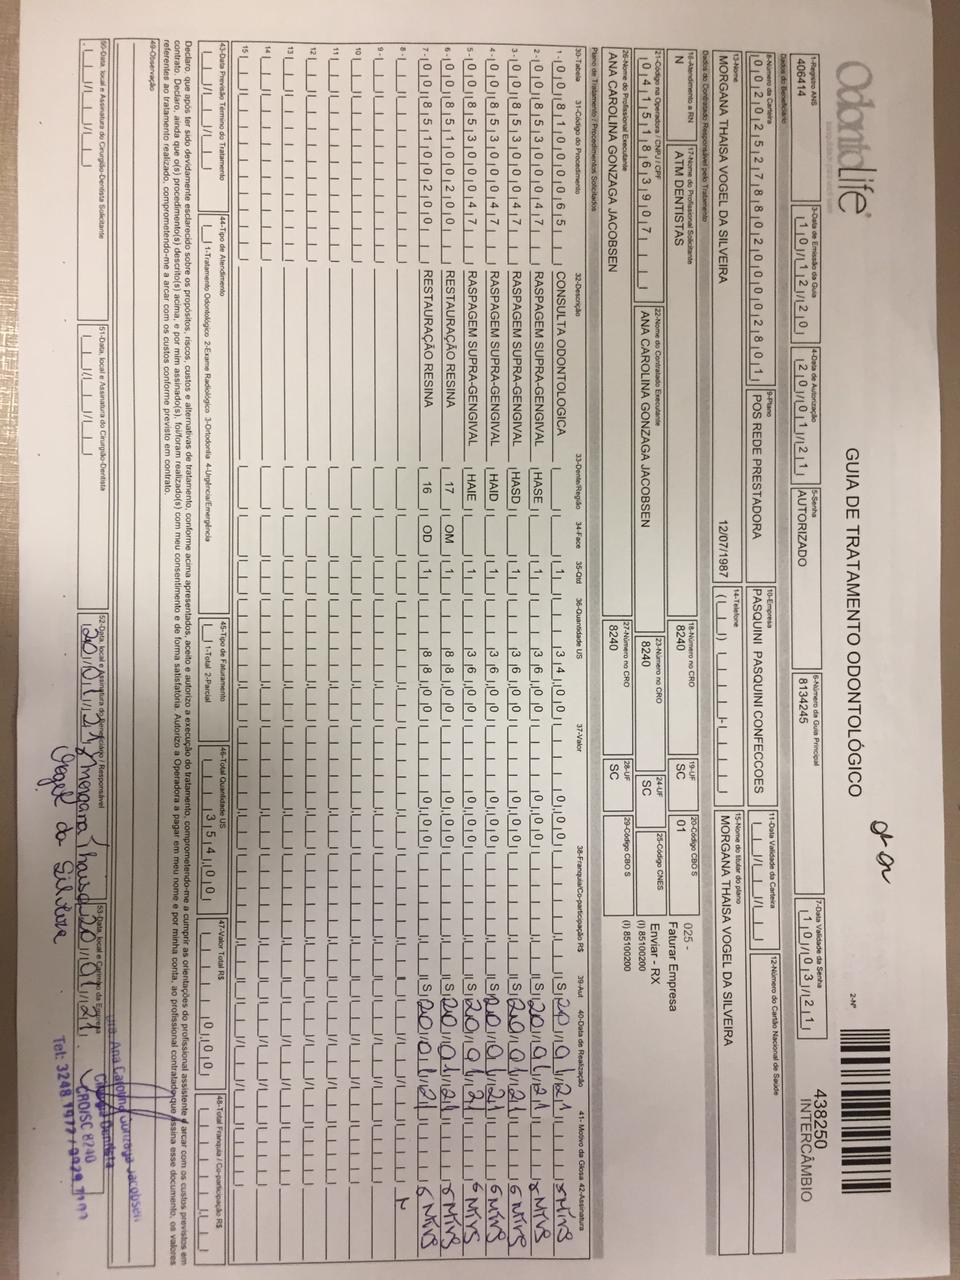 odontLife®
GUIA DE TRATAMENTO ODONTOLÓGICO
2-Nº
438250
INTERCÂMBIO
1-Registro ANS
406414
3-Data de Emissão da Guia
10/12/20
4-Data de Autorização
20/01/21
5-Senha
AUTORIZADO
6-Número da Guia Principal
8134245
7-Data Validade da Senha
10/03/21
Dados do Beneficiário
8-Número da Carteira
00202527880200002801
9-Plano
POS REDE PRESTADORA
10-Empresa
PASQUINI PASQUINI CONFECCOES
11-Data Validade da Carteira
12-Número do Cartão Nacional de Saúde
13-Nome
MORGANA THAISA VOGEL DA SILVEIRA 12/07/1987
14-Telefone
15-Nome do titular do plano
MORGANA THAISA VOGEL DA SILVEIRA
Dados do Contratado Responsável pelo Tratamento
16-Atendimento a RN
N
17-Nome do Profissional Solicitante
ATM DENTISTAS
18-Número no CRO
8240
19-UF
SC
20-Código CBO S
01
025 -
Faturar Empresa
21-Código na Operadora / CNPJ / CPF
04151863907
22-Nome do Contratado Executante
ANA CAROLINA GONZAGA JACOBSEN
23-Número no CRO
8240
24-UF
SC
25-Código CNES
Enviar - RX
(I) 85100200
26-Nome do Profissional Executante
ANA CAROLINA GONZAGA JACOBSEN
27-Número no CRO
8240
28-UF
SC
29-Código CBO S
(I) 85100200
Plano de Tratamento / Procedimentos Solicitados
30-Tabela 31-Código do Procedimento 32-Descrição 33-Dente/Região 34-Face 35-Qtd 36-Quantidade US 37-Valor 38-Franquia/Co-participação R$ 39-Aut 40-Data de Realização 41- Motivo da Glosa 42-Assinatura
1 - 00 81000065 CONSULTA ODONTOLOGICA 1 34,00 0,00 S 20/01/21
2 - 00 85300047 RASPAGEM SUPRA-GENGIVAL HASE 1 36,00 0,00 S 20/01/21
3 - 00 85300047 RASPAGEM SUPRA-GENGIVAL HASD 1 36,00 0,00 S 20/01/21
4 - 00 85300047 RASPAGEM SUPRA-GENGIVAL HAID 1 36,00 0,00 S 20/01/21
5 - 00 85300047 RASPAGEM SUPRA-GENGIVAL HAIE 1 36,00 0,00 S 20/01/21
6 - 00 85100200 RESTAURAÇÃO RESINA 17 OM 1 88,00 0,00 S 20/01/21
7 - 00 85100200 RESTAURAÇÃO RESINA 16 OD 1 88,00 0,00 S 20/01/21
8 -
9 -
10 -
11 -
12 -
13 -
14 -
15 -
43-Data Previsão Término do Tratamento
44-Tipo de Atendimento
1-Tratamento Odontológico 2-Exame Radiológico 3-Ortodontia 4-Urgência/Emergência
45-Tipo de Faturamento
1-Total 2-Parcial
46-Total Quantidade US
354,00
47-Valor Total R$
0,00
48-Total Franquia / Co-participação R$
Declaro, que após ter sido devidamente esclarecido sobre os propósitos, riscos, custos e alternativas de tratamento, conforme acima apresentados, aceito e autorizo a execução do tratamento, comprometendo-me a cumprir as orientações do profissional assistente e arcar com os custos previstos em
contrato. Declaro, ainda que o(s) procedimento(s) descrito(s) acima, e por mim assinado(s), foi/foram realizado(s) com meu consentimento e de forma satisfatória. Autorizo a Operadora a pagar em meu nome e por minha conta, ao profissional contratado que assina esse documento, os valores
referentes ao tratamento realizado, comprometendo-me a arcar com os custos conforme previsto em contrato.
49-Observação
50-Data, local e Assinatura do Cirurgião-Dentista Solicitante
51-Data, local e Assinatura do Cirurgião-Dentista
52-Data, local e Assinatura do Beneficiário / Responsável
20/01/21 Morgana Thaisa
Vogel da Silveira
53-Data, local e Carimbo da Empresa
20/01/21
Dra. Ana Carolina Gonzaga Jacobsen
Cirurgiã Dentista
CRO/SC 8240
Tel: 3248 1977